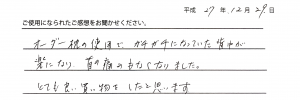 平成 27年 12月 29日
ご使用になられたご感想をお聞かせください。
オーダー枕の使用で、ガチガチになっていた背中が
楽になり、首の痛みもなくなりました。
とても良い買い物をしたと思います